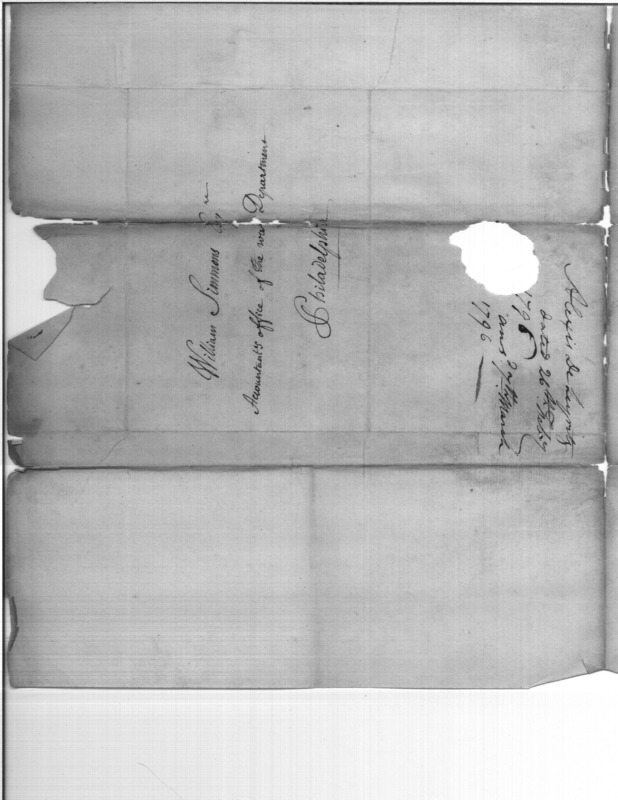 William Simmons Esqre
Accountant's office of the war Department
Philadelphia
Alexis de
Dated 26
1796
ans. 7th March
1796